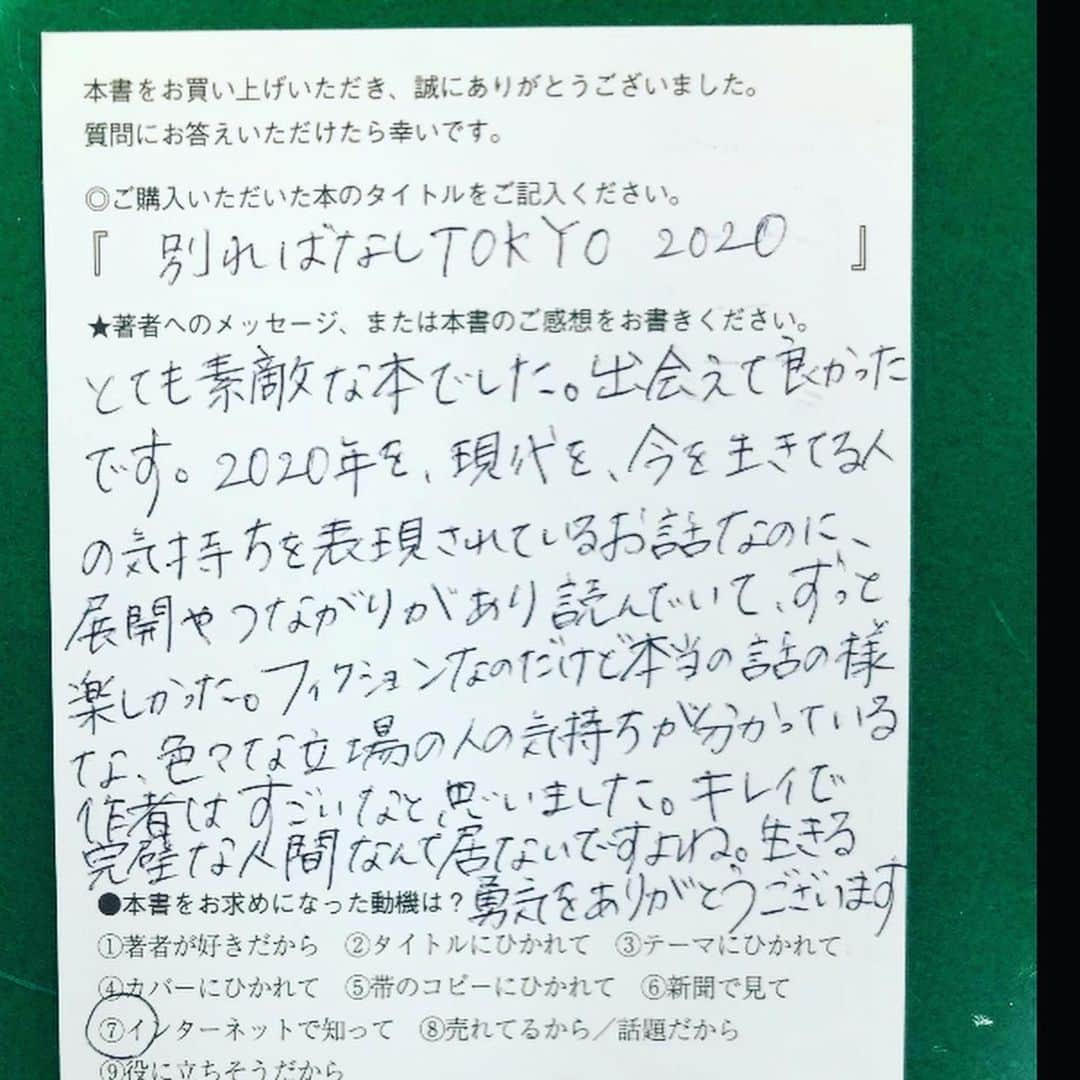 本書をお買い上げいただき、誠にありがとうございました。
質問にお答えいただけたら幸いです。
◎ご購入いただいた本のタイトルをご記入ください。
『 別ればなしTOKYO 2020 』
★著者へのメッセージ、または本書のご感想をお書きください。
とても素敵な本でした。出会えて良かった
です。2020年を、現代を、今を生きてる人
の気持ちを表現されているお話なのに、
展開やつながりがあり読んでいて、ずっと
楽しかった。フィクションなのだけど本当の話の様
な、色々な立場の人の気持ちが分かっている
作者はすごいなと思いました。キレイで
完璧な人間なんて居ないですよね。生きる
●本書をお求めになった動機は?勇気をありがとうございます
①著者が好きだから ②タイトルにひかれて ③テーマにひかれて
④カバーにひかれて ⑤帯のコピーにひかれて ⑥新聞で見て
⑦インターネットで知って ⑧売れてるから/話題だから
⑨役に立ちそうだから